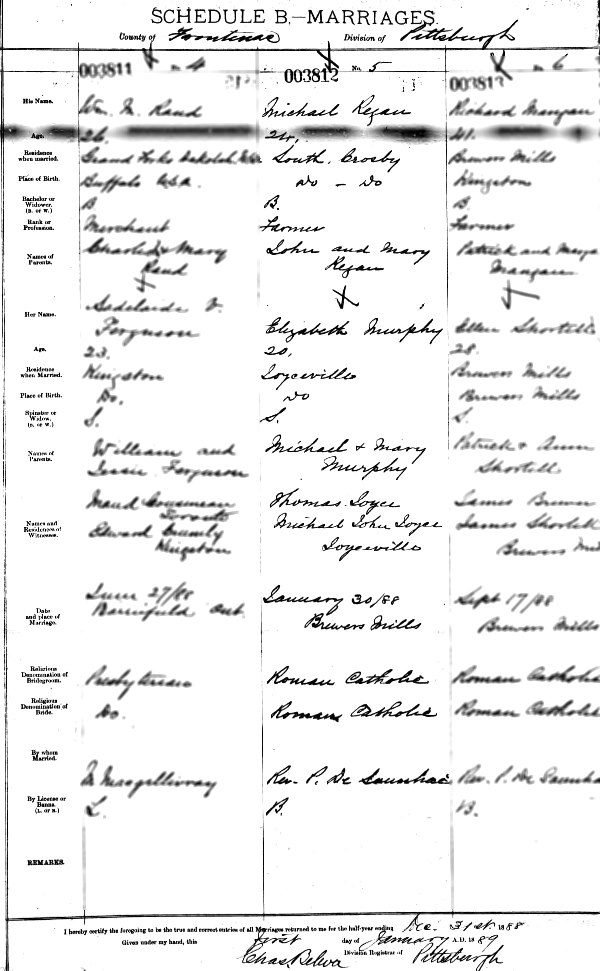 SCHEDULE B.—MARRIAGES.
County of Frontenac Division of Pittsburgh
003811 No. 4 003812 No. 5 003813 No. 6
His Name. Wm. M. Rand Michael Regan Richard Mangan
Age. 26. 24, 41.
Residence when married. Grand Forks Dakota South Crosby Brewers Mills
Place of Birth. Buffalo U.S.A. Do - Do Kingston
Bachelor or Widower. (B. or W.) B B. B.
Rank or Profession. Merchant Farmer Farmer
Names of Parents. Charles & Mary Rand John and Mary Regan Patrick and Mangan
Her Name. Adelaide V. Ferguson Elizabeth Murphy Ellen Shortell
Age. 23. 20, 28.
Residence when Married. Kingston Joyceville Brewers Mills
Place of Birth. Do. Do Brewers Mills
Spinster or Widow. (S. or W.) S. S. S.
Names of Parents. William and Jessie Ferguson Michael & Mary Murphy Patrick & Ann Shortell
Names and Residences of Witnesses. Maud Toronto Edward Kingston Thomas Joyce Michael John Joyce Joyceville James Brewn James Shortell Brewers
Date and place of Marriage. June 27/88 Barriefield Ont. January 30/88 Brewers Mills Sept 17/88 Brewers Mills
Religious Denomination of Bridegroom. Presbyterian Roman Catholic Roman Catholic
Religious Denomination of Bride. Do. Roman Catholic Roman Catholic
By whom Married. Macgillivray Rev. P. De Saunhac Rev. P. De Saunha
By License or Banns. (L. or B.) L. B. B.
REMARKS.
I hereby certify the foregoing to be the true and correct entries of all Marriages returned to me for the half-year ending Dec. 31st 1888
Given under my hand, this first day of January A.D. 1889
Chas Division Registrar of Pittsburgh